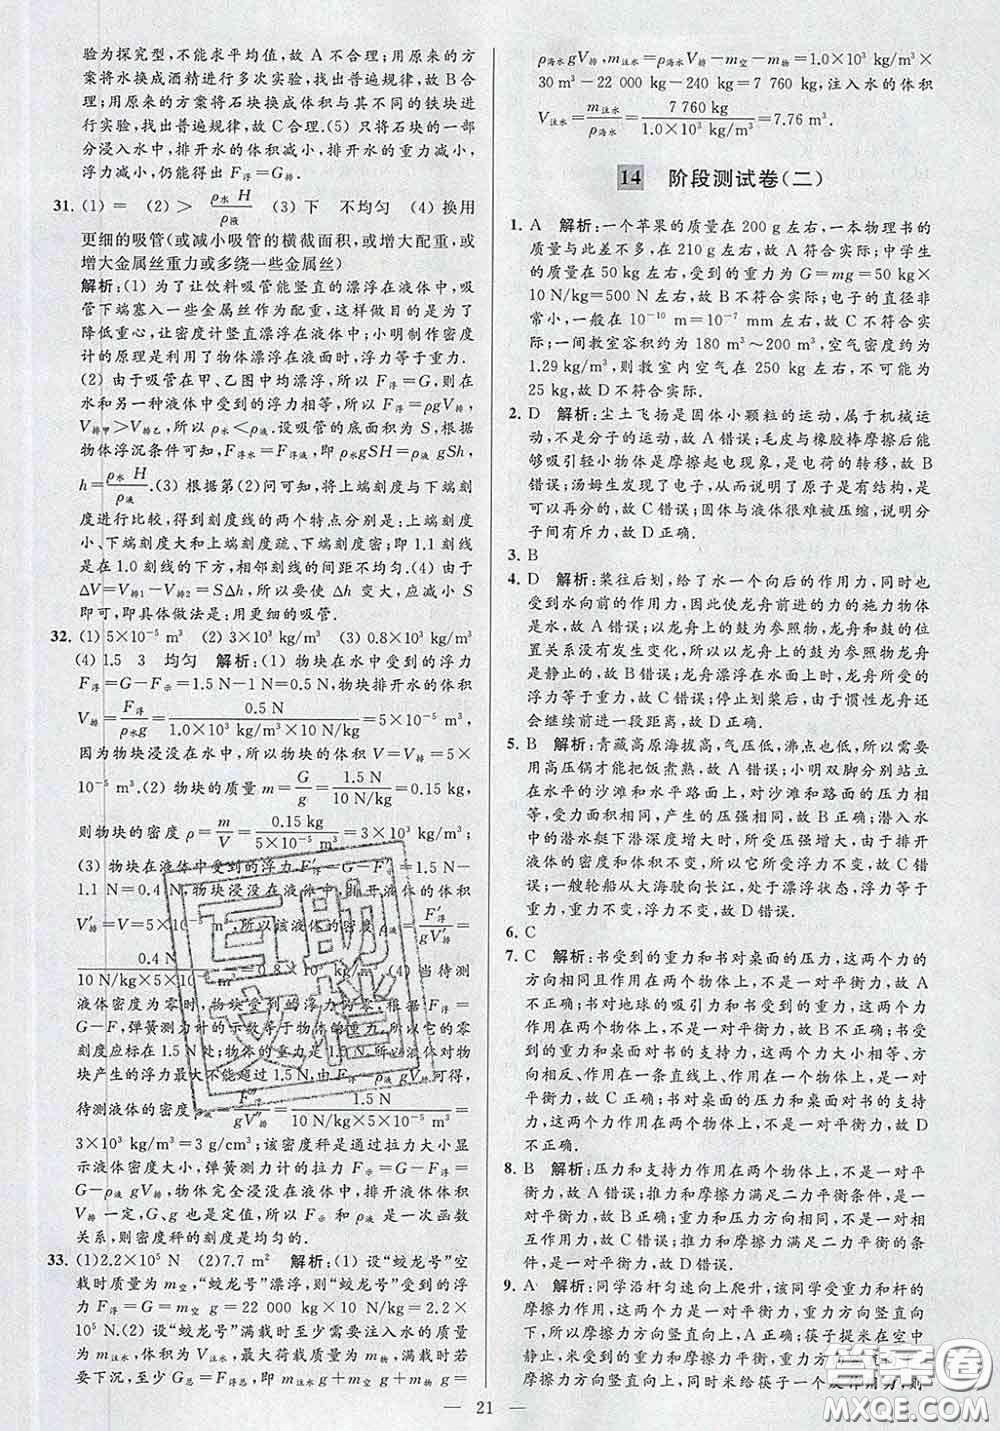 验为探究型,不能求平均值,故 A 不合理;用原来的方
案将水换成酒精进行多次实验,找出普遍规律,故 B 合
理;用原来的方案将石块换成体积与其不同的铁块进
行实验,找出普遍规律,故 C 合理.(5) 只将石块的一部
分浸入水中,排开水的体积减小,排开水的重力减小,
浮力减小,仍能得出 F浮=G排.
31. (1) = (2) > ρ水 H/ρ液 (3) 下 不均匀 (4) 换用
更细的吸管(或减小吸管的横截面积,或增大配重,或
增大金属丝重力或多绕一些金属丝)
解析:(1) 为了让饮料吸管能竖直的漂浮在液体中,吸
管下端塞入一些金属丝作为配重,这样做目的是为了
降低重心,让密度计竖直漂浮在液体中;小明制作密度
计的原理是利用了物体漂浮在液面时,浮力等于重力.
(2) 由于吸管在甲、乙图中均漂浮,所以 F浮=G,则在
水和另一种液体中受到的浮力相等,F浮=ρgV排,
V排甲>V排乙,所以 ρ水<ρ液.设吸管的底面积为 S,根据
物体浮沉条件可知,F浮水=F浮液,即 ρ水gSH=ρ液 gSh,
h=ρ水 H/ρ液.(3) 根据第(2)问可知,将上端刻度与下端刻
度进行比较,得到刻度线的两个特点分别是:上端刻度
小、下端刻度大和上端刻度疏、下端刻度密;即 1.1 刻线
是在 1.0 刻线的下方,相邻刻线的间距不均匀.(4) 由于
ΔV=V排1-V排2=SΔh,所以要使 Δh 变大,应减小 S
即可,即具体做法是:用更细的吸管.
32. (1) 5×10⁻⁵ m³ (2) 3×10³ kg/m³ (3) 0.8×10³ kg/m³
(4) 1.5 3 均匀 解析:(1) 物块在水中受到的浮力
F浮=G-F示=1.5 N-1 N=0.5 N,物块排开水的体积
V排=F浮/ρ水g=0.5 N/1.0×10³ kg/m³×10 N/kg=5×10⁻⁵ m³.
因为物块浸没在水中,所以物块的体积 V=V排=5×
10⁻⁵ m³.(2) 物块的质量 m=G/g=1.5 N/10 N/kg=0.15 kg,
则物块的密度 ρ=m/V=0.15 kg/5×10⁻⁵ m³=3×10³ kg/m³;
(3) 物块在液体中受到的浮力 F′浮=G-F′示=1.5 N-
1.1 N=0.4 N,物块浸没在液体中,排开液体的体积
V′排=V=5×10⁻⁵ m³.所以该液体的密度 ρ液=F′浮/gV′排=
0.4 N/10 N/kg×5×10⁻⁵ m³=0.8×10³ kg/m³.(4) 当待测
液体密度为零时,物块受到的浮力为零,根据 F浮=
G-F,弹簧测力计的示数等于物体的重力,所以它的零
刻度应标在 1.5 N 处;物体的重力是 1.5 N,所以液体对物
块产生的浮力最大不能超过 1.5 N.由 F浮=ρ液 gV排可得,
待测液体的密度 ρ″液=F″浮/gV″排=1.5 N/10 N/kg×5×10⁻⁵ m³=
3×10³ kg/m³=3 g/cm³;该密度秤是通过拉力大小显
示液体密度大小,弹簧测力计的拉力 F示=G-F浮=
G-ρ液 gV排,物体完全浸没在液体中,排开液体体积
V排 一定,G、g 也是定值,所以 F示 和 ρ液 是一次函数
关系,则密度秤的刻度是均匀的.
33. (1)2.2×10⁵ N (2)7.7 m² 解析:(1) 设“蛟龙号”空
载时质量为 m空,“蛟龙号”漂浮,则“蛟龙号”受到的浮
力 F浮=G=m空 g=22 000 kg×10 N/kg=2.2×
10⁵ N.(2) 设“蛟龙号”满载时至少需要注入水的质量
为 m注水,体积为 V注水,最大荷载质量为 m物,满载时若
要下沉,至少 G总=F浮总,即 m注水g+m空g+m物g=
ρ海水 gV排,m注水=ρ海水V排-m空-m物=1.0×10³ kg/m³×
30 m³-22 000 kg-240 kg=7 760 kg,注入水的体积
V注水=m注水/ρ海水=7 760 kg/1.0×10³ kg/m³=7.76 m³.
14 阶段测试卷(二)
1. A 解析:一个苹果的质量在 200 g 左右,一本物理书的
质量与此差不多,在 210 g 左右,故 A 符合实际;中学生
的质量在 50 kg 左右,受到的重力为 G=mg=50 kg
×10 N/kg=500 N 左右,故 B 不符合实际;电子的直径
非常小,一般在 10⁻¹⁰ m=10⁻⁷ mm 左右,故 C 不符合实
际;一间教室容积约为 180 m³~200 m³,空气密度约为
1.29 kg/m³,则教室内空气在 250 kg 左右,不可能为
25 kg,故 D 不符合实际.
2. D 解析:尘土飞扬是固体小颗粒的运动,属于机械运
动,不是分子的运动,故 A 错误;毛皮与橡胶棒摩擦后能
够吸引轻小物体是摩擦起电现象,是电荷的转移,故 B
错误;汤姆生发现了电子,从而说明了原子是有结构,是
可以再分的,故 C 错误;固体与液体很难被压缩,说明分
子间有斥力,故 D 正确.
3. B
4. D 解析:桨往后划,给了水一个向后的作用力,同时也
受到水向前的作用力,因此使龙舟前进的力的施力物体
是水,故 A 错误;以龙舟上的鼓为参照物,龙舟的位
置关系没有发生变化,所以以龙舟上的鼓为参照物,龙舟
是静止的,故 B 错误;龙舟漂浮在水面上,龙舟所受的
浮力等于重力,故 C 错误;停止划桨后,由于惯性龙舟还
会继续前进一段距离,故 D 正确.
5. B 解析:青藏高原海拔高,气压低,沸点也低,所以要使
用高压锅才能把饭煮熟,故 A 错误;小明双脚分别站立
在水平的沙滩和水平路面上,对沙滩和路面的压力相
同,受力面积相同,产生的压强相同,故 B 正确;潜入水
中的潜水艇下潜深度增大时,所受压强增大,由于排开
液体的密度和体积不变,所以所受浮力不变,故 C 错
误;一艘轮船从大海驶向长江,始终处于漂浮状态,浮力
等于重力,重力不变,浮力不变,故 D 错误.
6. C
7. C 解析:书受到的重力和书对桌面的压力,这两个力的
方向相同且作用在两个物体上,不是一对平衡力,故 A
不正确;书对地球的吸引力和书受到的重力,这两个力
作用在两个物体上,不是一对平衡力,故 B 不正确;书受
到的重力和桌面对书的支持力,这两个力大小相等、方
向相反、作用在一条直线上、作用在一个物体上,是一对
平衡力,故 C 正确;书对桌面的压力和桌面对书的支持
力,这两个力作用在两个物体上,不是一对平衡力,故 D
不正确.
8. B 解析:压力和支持力作用在两个物体上,不是一对平
衡力,故 A 错误;推力和摩擦力满足二力平衡条件,是一
对平衡力,故 B 正确;重力和压力方向相同,不是一对平
衡力,故 C 错误;重力和摩擦力不满足二力平衡条件,不
是一对平衡力,故 D 错误.
9. A 解析:同学沿杆匀速向上爬升,该同学受重力和杆的
摩擦力作用,这两个力是一对平衡力,重力方向竖直向
下,则摩擦力方向竖直向上,A 正确;筷子提米在空中
静止,米受到的重力和摩擦力平衡,摩擦力方向竖直向
上,故 B 错误;向后蹬地时给地面一个向后的作用力,则
21
互助文档
答案卷
MXQE.COM